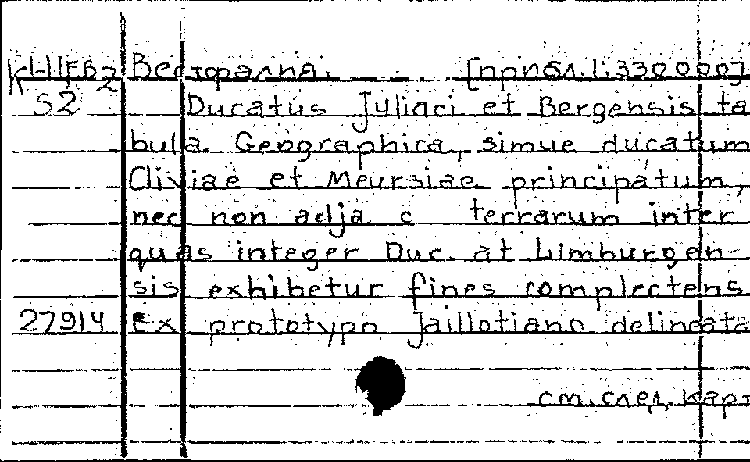 Вестфалия. [прибл.1:330 000]
52 Ducatus Juliaci et Bergensis ta
bula Geographica, simue ducatum
Cliviae et Meursiae principatum,
nec non adja c terrarum inter
quas integer Duc. at Limburgen-
sis exhibetur fines complectens
27914 Ex prototypo Jaillotiano delineata
см. след. карт